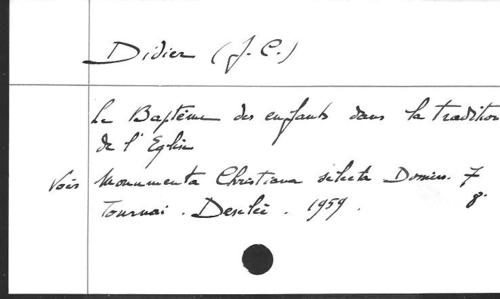 Didier (J. C.)
Le Baptême des enfants dans la tradition
de l'Eglise
Voir Monumenta Christiana selecta Domin. 7
Tournai. Desclée. 1959. 8.